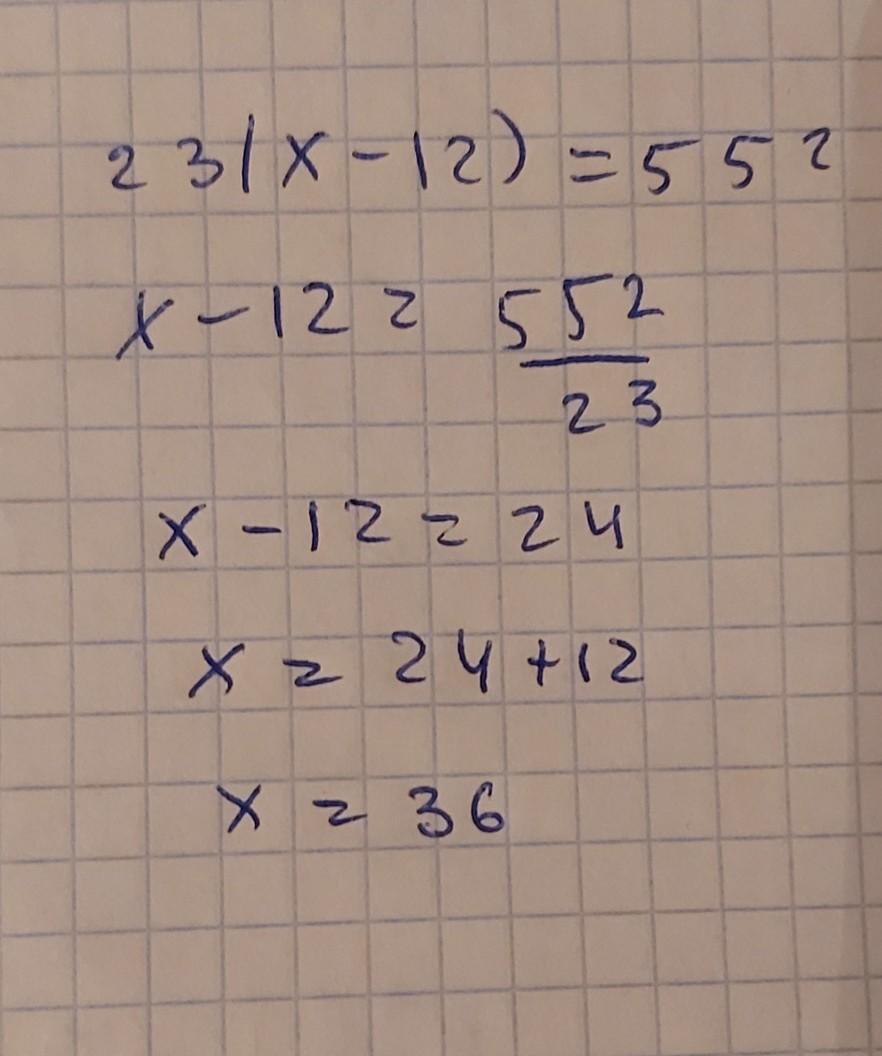 23(x-12) = 552
x-12 = 552/23
x-12 = 24
x = 24+12
x = 36